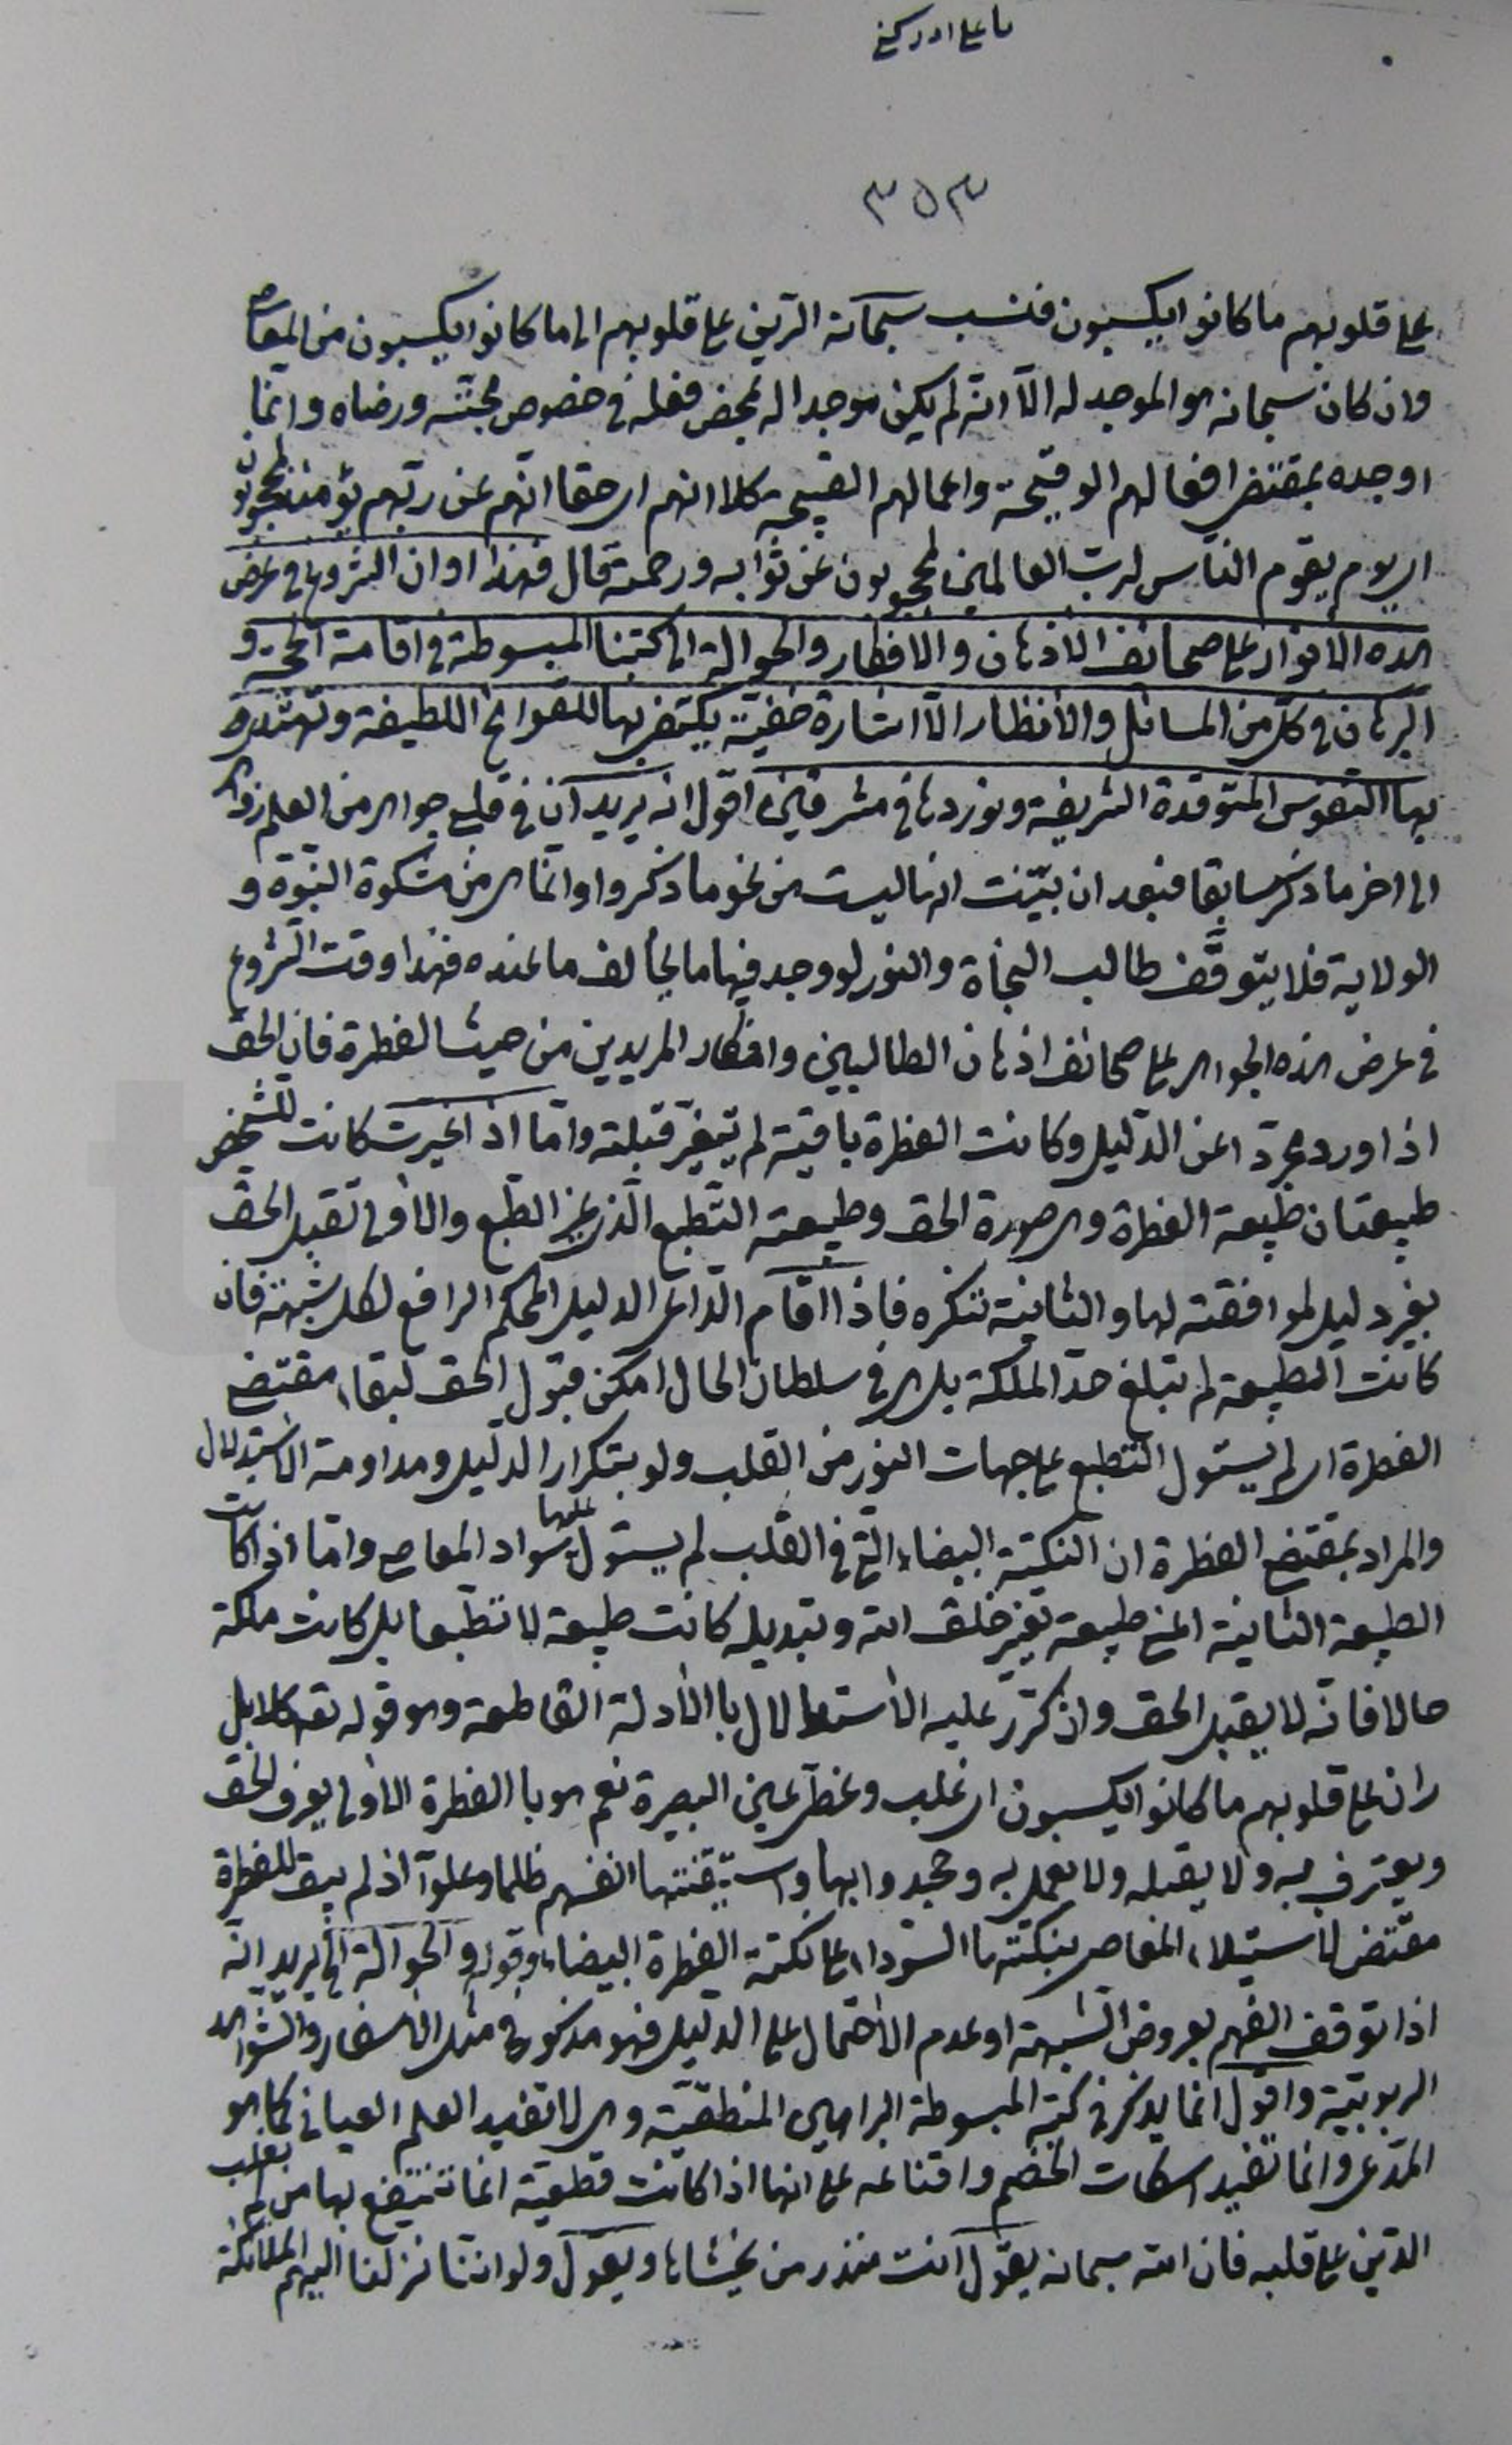 ٣٥٣
على قلوبهم ما كانوا يكسبون فنسب سبحانه الرين على قلوبهم الى ما كانوا يكسبون من المعاصى
وان كان سبحانه هو الموجد له الّا انّه لم يكن موجدا له لمحض فعله فى خصوص محبّته ورضاه وانّما
اوجده بمقتضى افعالهم الوقيحة واعمالهم القبيحة كلا انهم اى حقا انّهم عن ربّهم يؤمئذ لمحجوبون
اى يوم يقوم الناس لرب العالمين لمحجوبون عن ثوابه ورحمته قال فهذا اوان الشروع فى عرض
هذه الانوار على صحائف الاذهان والافكار والحوالة الى كتبنا المبسوطة فى اقامة الحجّة و
البرهان فى كلّ من المسائل والانظار الّا اشارة خفيّة يكتفى بها للقوايح اللطيفة وتهتدى
بها النفوس المتوقدة الشريفة ونوردها فى مشرقين اقول انه يريد انّ فى قلبى جواهر من العلم زواهر
الى اخر ما ذكر سابقا فبعد ان بيّنت انها ليست من نحو ما ذكروا وانّما هى من مشكوة النبوّة و
الولاية فلا يتوقّف طالب النجاة والنور لو وجد فيها ما يخالف ما عنده فهذا وقت الشروع
فى عرض هذه الجواهر على صحائف اذهان الطالبين وافكار المريدين من حيث الفطرة فان الحق
اذا ورد مجرّدا عن الدّليل وكانت الفطرة باقية لم تتغيّر قبلته وامّا اذا غيرت كانت للشخص
طبيعتان طبيعة الفطرة وهى صورة الحق وطبيعة التّطبع الّذى غيّر الطّبع والاولى تقبل الحق
بغير دليل لموافقته لها والثانية تنكره فاذا اقام الدّاعى الدليل المحكم الرافع لكل شبهة فان
كانت الطبيعة لم تبلغ حدّ الملكة بل هى فى سلطان الحال امكن قبول الحق لبقاء مقتضى
الفطرة اى لم يستول التطبع على جهات النور من القلب ولو بتكرار الدّليل ومداومة الاستدلال
والمراد بمقتضى الفطرة ان النكتة البيضاء التى فى القلب لم يستول عليها سواد المعاصى وامّا اذا كانت
الطبيعة الثانية اعنى طبيعة تغيير خلق الله وتبديله كانت طبيعة لا تطبّعا بل كانت ملكة
حالا فانّه لا يقبل الحق وان كرّر عليه الاستدلال باالادلة القاطعة وهو قوله تعالى كلا بل
ران على قلوبهم ما كانوا يكسبون اى غلب وغطّى عين البصيرة نعم هو باالفطرة الاولى يعرف الحق
ويعترف به ولا يقبله ولا يعمل به وجحدوا بها واستيقنتها انفسهم ظلما وعلوّا اذ لم يبق للفطرة
مقتضى لاستيلاء المعاصى بنكتتها السّوداء على نكتة الفطرة البيضاء وقوله والحوالة الخ يريد انّه
اذا توقف الفهم بعروض الشبهة او عدم الاحتمال على الدّليل فهو مذكور فى مثل الاسفار والشواهد
الربوبيّة واقول انما يذكر فى كتبه المبسوطة البراهين المنطقيّة وهى لا تفيد العلم العيانى كما هو
المدّعى وانما تفيد اسكات الخصم واقناعه على انها اذا كانت قطعيّة انما تنتفع بها من لم يغلب
الرين على قلبه فان الله سبحانه يقول انت منذر من يخشاها ويقول ولو انّنا نزلنا اليهم الملائكة